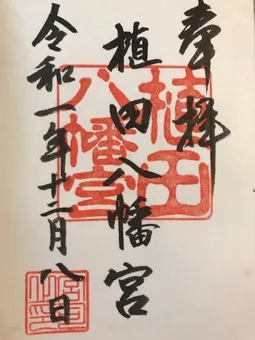 奉拝
植田八幡宮
令和一年十二月八日
植田
八幡宮